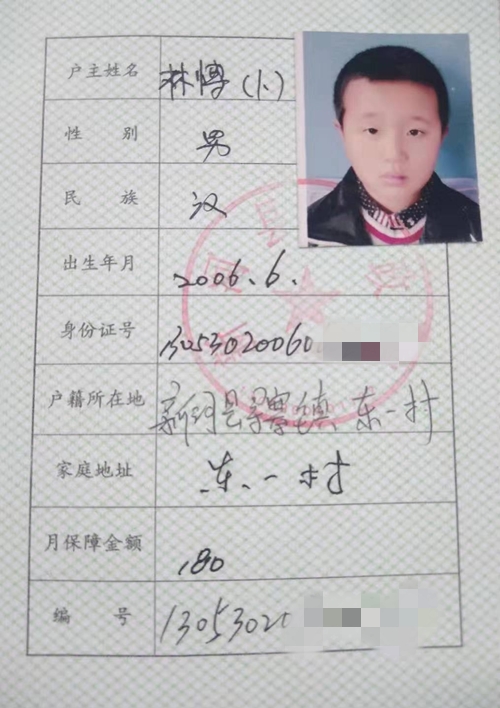 户主姓名 林博(1人)
性 别 男
民 族 汉
出生年月 2006.6.
身份证号 13053020060
户籍所在地 新河县寻寨镇东一村
家庭地址 东一村
月保障金额 180
编 号 1305302